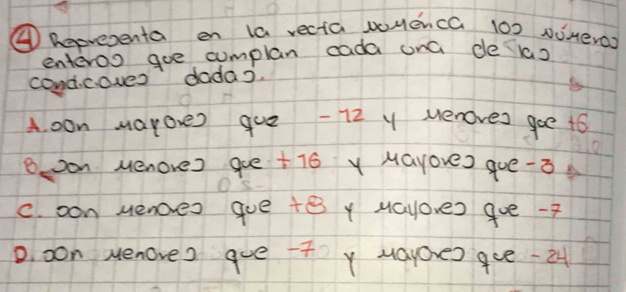 ④ Representa en la recta numérica los números
enteros que cumplan cada una de las
condicones dadas.
A. son mayores que -12 y menores que +6
B. son menores que +16 y mayores que -3
C. son menores que +8 y mayores que -7
D. son menores que -7 y mayores que -24